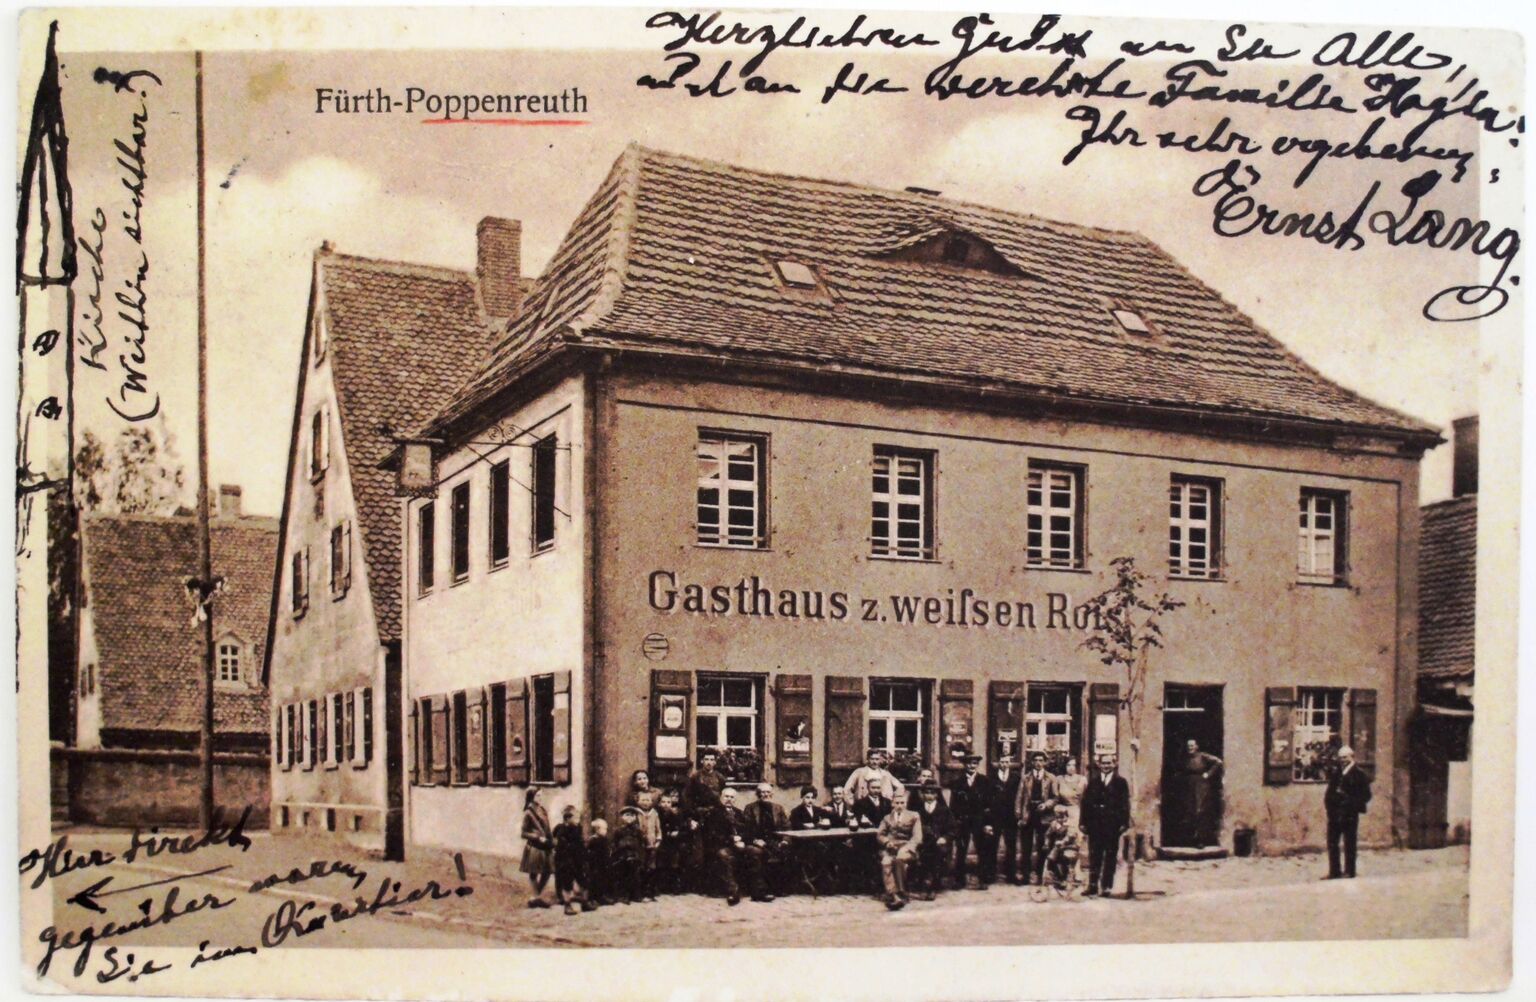 Herzlichen Gruß an Sie Alle,
und an die verehrte Familie
Ihr sehr ergebener,
Ernst Lang.
Fürth-Poppenreuth
Kirche
(Weithin sichtbar!)
Gasthaus z. weiſsen Roß
Erdal
MAGGI
Hier direkt
gegenüber waren
Sie im Quartier!